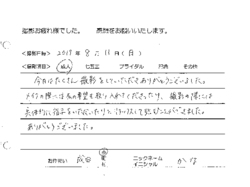 撮影お疲れ様でした。 感想をお願いいたします。
<撮影日時> 2017年 8月 11日(日)
<撮影項目> 成人 七五三 ブライダル 円満 その他
今日はたくさん撮影をしていただきありがとうございました。
メイクの際には私の希望を取り入れてくださったり、撮影の際には
お気軽に話をしていただいたりと、リラックスして臨むことができました。
ありがとうございました。
お住まい 成田 市 ニックネーム イニシャル かな